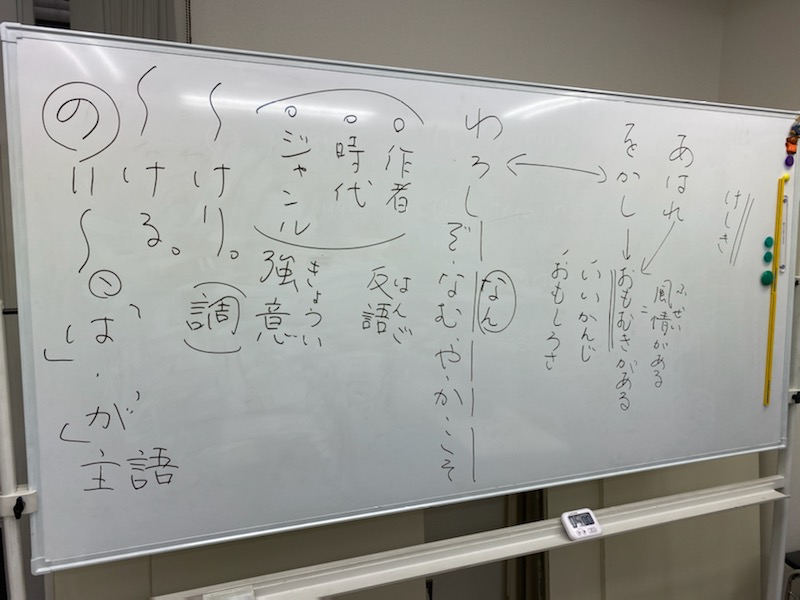 けしき
あはれ
ふぜい
風情がある
をかし→おもむきがある
いいかんじ
おもしろさ
わろし
なん
ぞ・なむ・や・か・こそ
。作者
。時代
。ジャンル
はんご
反語
きょうい
強意
調
〜けり。
〜ける。
の=〜
「は」・「が」
主語